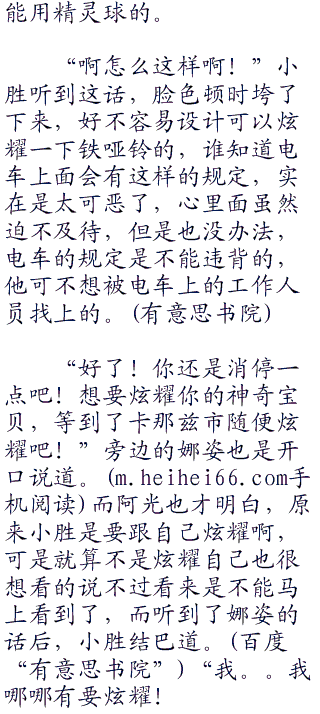 能用精灵球的。
“啊怎么这样啊！”小
胜听到这话，脸色顿时垮了
下来，好不容易设计可以炫
耀一下铁哑铃的，谁知道电
车上面会有这样的规定，实
在是太可恶了，心里面虽然
迫不及待，但是也没办法，
电车的规定是不能违背的，
他可不想被电车上的工作人
员找上的。(有意思书院)
“好了！你还是消停一
点吧！想要炫耀你的神奇宝
贝，等到了卡那兹市随便炫
耀吧！”旁边的娜姿也是开
口说道。(m.heihei66.com手
机阅读)而阿光也才明白，原
来小胜是要跟自己炫耀啊，
可是就算不是炫耀自己也很
想看的说不过看来是不能马
上看到了，而听到了娜姿的
话后，小胜结巴道。(百度
“有意思书院”)“我。。我
哪哪有要炫耀！